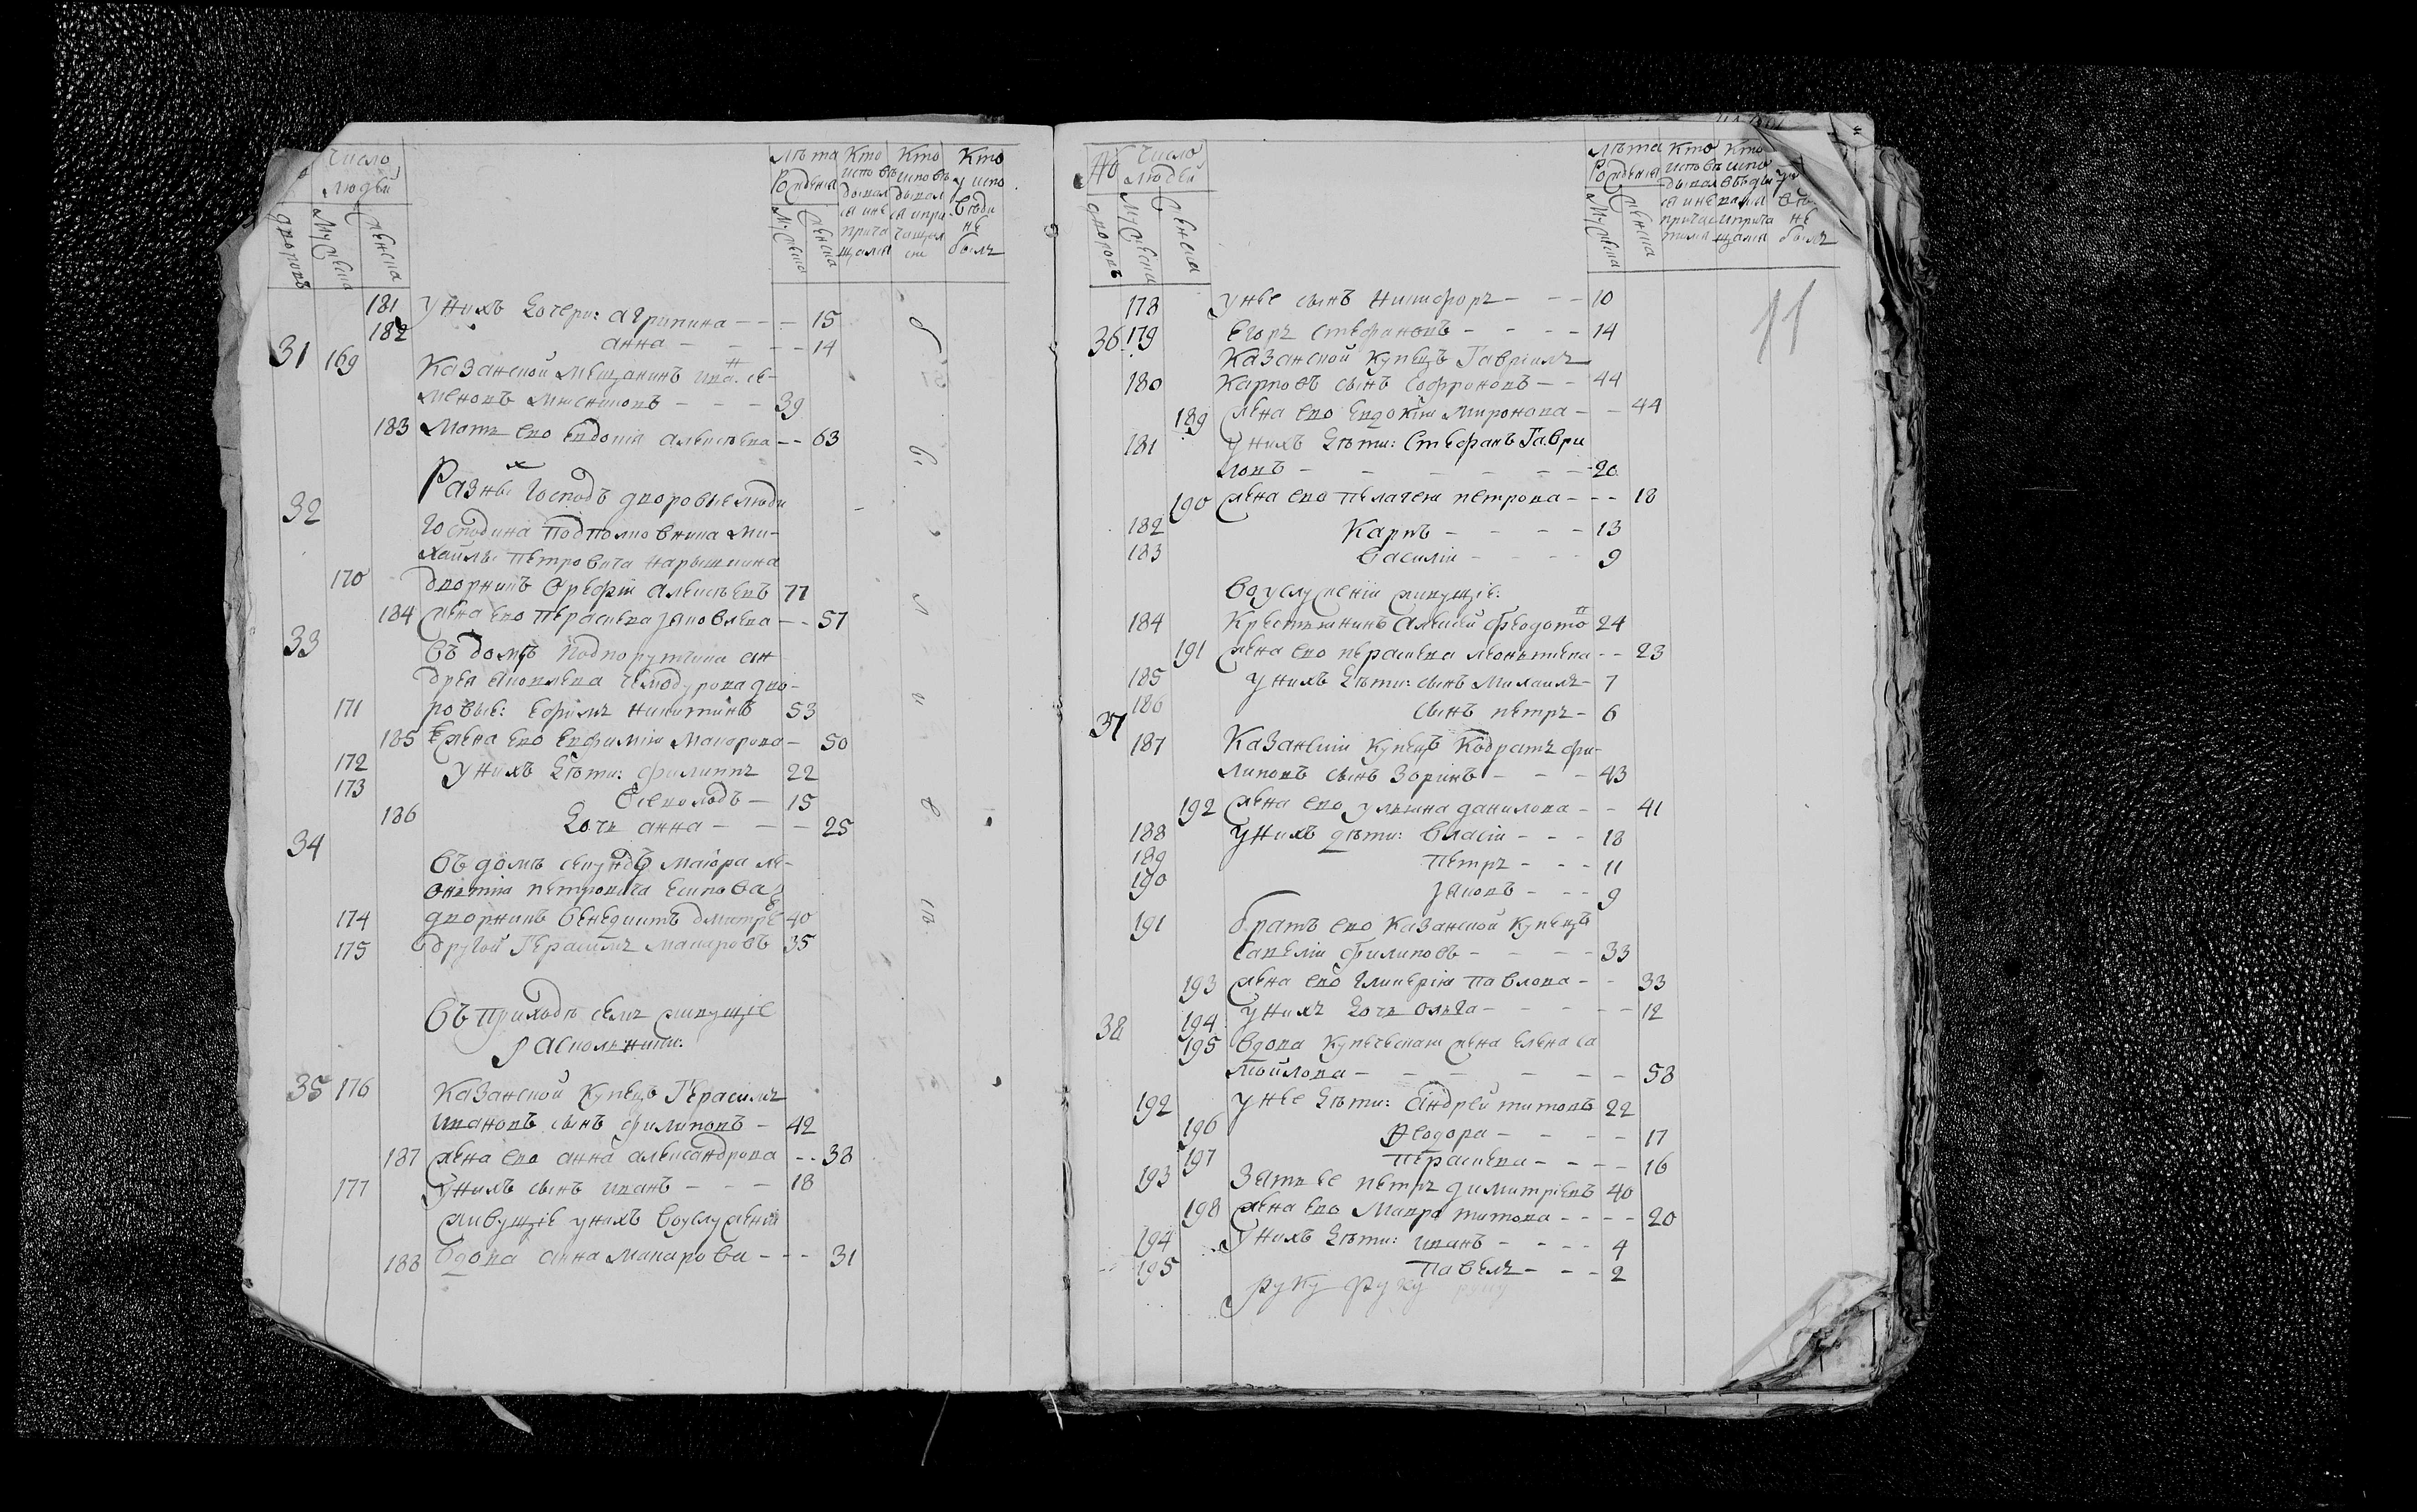 Число людей
дворовъ
Мужеска
женска
Лѣта Рожденiя
Мужеска
женска
Кто исповѣдывался и не причащался
Кто исповѣдывался и причащался
Кто у исповѣди не былъ
181 У нихъ дочери: агрипина - - - 15
182 анна - - - 14
31 169 Казанской мещанинъ ива н се-
меновъ - - - 39
183 Мать ево евдокiя алексѣева - - 63
Разны х Господъ дворовые люди
32
Господина Подполковника Ми-
хайлы Петровича Нарышкина
170 дворникъ Орефiй алексѣевъ 77
184 жена ево Парасковья Яковлева - - 57
33
Въ домѣ Подпорутчика ан
дрея Яковлева дво-
171 ровые: ефимъ никитинъ 53
185 жена ево евфимiя Макарова - 50
172 У нихъ дѣти: филиппъ 22
173 Всеволодъ - 15
186 дочь анна - - - 25
34
Въ домѣ секундъ маiора ле-
онтия петровича есипова
174 дворникъ Венедиктъ дмитрiе в 40
175 другой Герасимъ макаровъ 35
Въ Приходѣ семъ живущiе
раскольники:
35 176 Казанской Купецъ Герасимъ
ивановъ сынъ филиповъ - 42
187 жена ево анна александрова - - 38
177 У нихъ сынъ иванъ - - - 18
живущiе у нихъ во услуженiи
188 вдова анна макарова - - - 31
11
№ дворовъ
Число людей
Мужеска
женска
Лѣта Рожденiя
Мужеска
женска
178 У нее сынъ Никифоръ - - - 10
36 179 Егоръ Стефановъ - - - - 14
Казанской Купецъ Гаврiилъ
180 Карповъ сынъ Софроновъ - - 44
189 жена ево евдокiя миронова - - 44
181 У нихъ дѣти: Стефанъ Гаври
ловъ - - - - - - 20
190 жена ево пелагея петрова - - - 18
182 Карпъ - - - - 13
183 Василiи - - - - 9
Во услуженiи живущiе:
184 Крестьянинъ алексей феодото в 24
191 жена ево парасковья леонтиева - - 23
185 У нихъ дѣти: сынъ Михаилъ - 7
186 сынъ петръ - 6
37
187 Казанскiй Купецъ Кодратъ фи-
липовъ сынъ Зоринъ - - - 43
192 жена ево ульяна данилова - - 41
188 У нихъ дѣти: Власiи - - - 18
189 Петръ - - - 11
190 Яковъ - - - 9
191 братъ ево Казанской Купецъ
Савелiй Филиповъ - - - - 33
193 жена ево гликерiя павлова - - 33
194 У нихъ дочь ольга - - - - - 12
38 195 Вдова Купеческая жена елена са
мойлова - - - - - - 58
192 У нее дѣти: андрей титовъ 22
196 Феодора - - - - 17
197 Парасковья - - - - 16
193 Зять ее петръ димитрiевъ 40
198 жена ево Мавра титова - - - - 20
194 У нихъ дѣти: иванъ - - - - 4
195 Павелъ - - - 2
руку руку